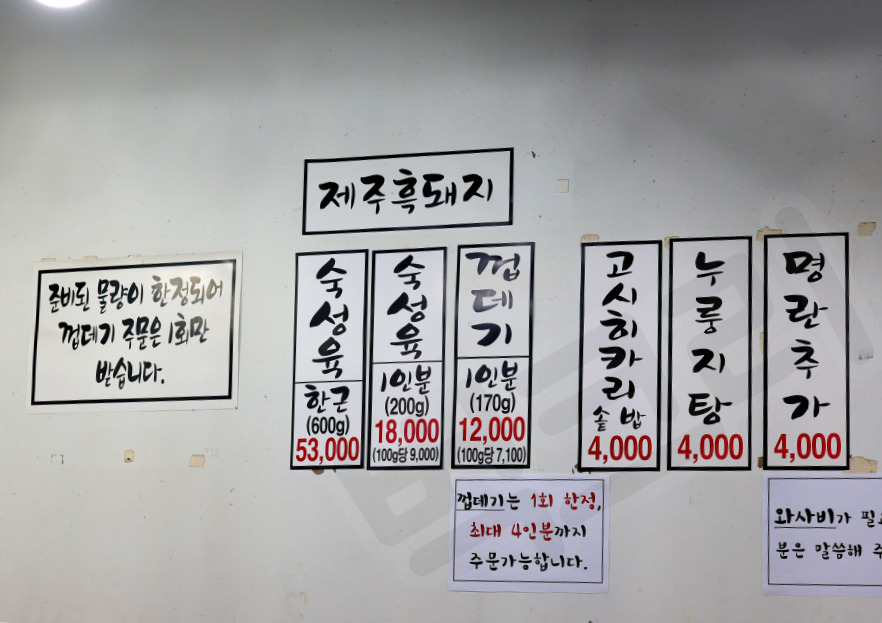 제주흑돼지
준비된 물량이 한정되어
껍데기 주문은 1회만
받습니다.
숙성육
한근
(600g)
53,000
숙성육
1인분
(200g)
18,000
(100g당 9,000)
껍데기
1인분
(170g)
12,000
(100g당 7,100)
고시히카리
솥밥
4,000
누룽지탕
4,000
명란추가
4,000
껍데기는 1회 한정,
최대 4인분까지
주문가능합니다.
와사비가
분은 말씀해